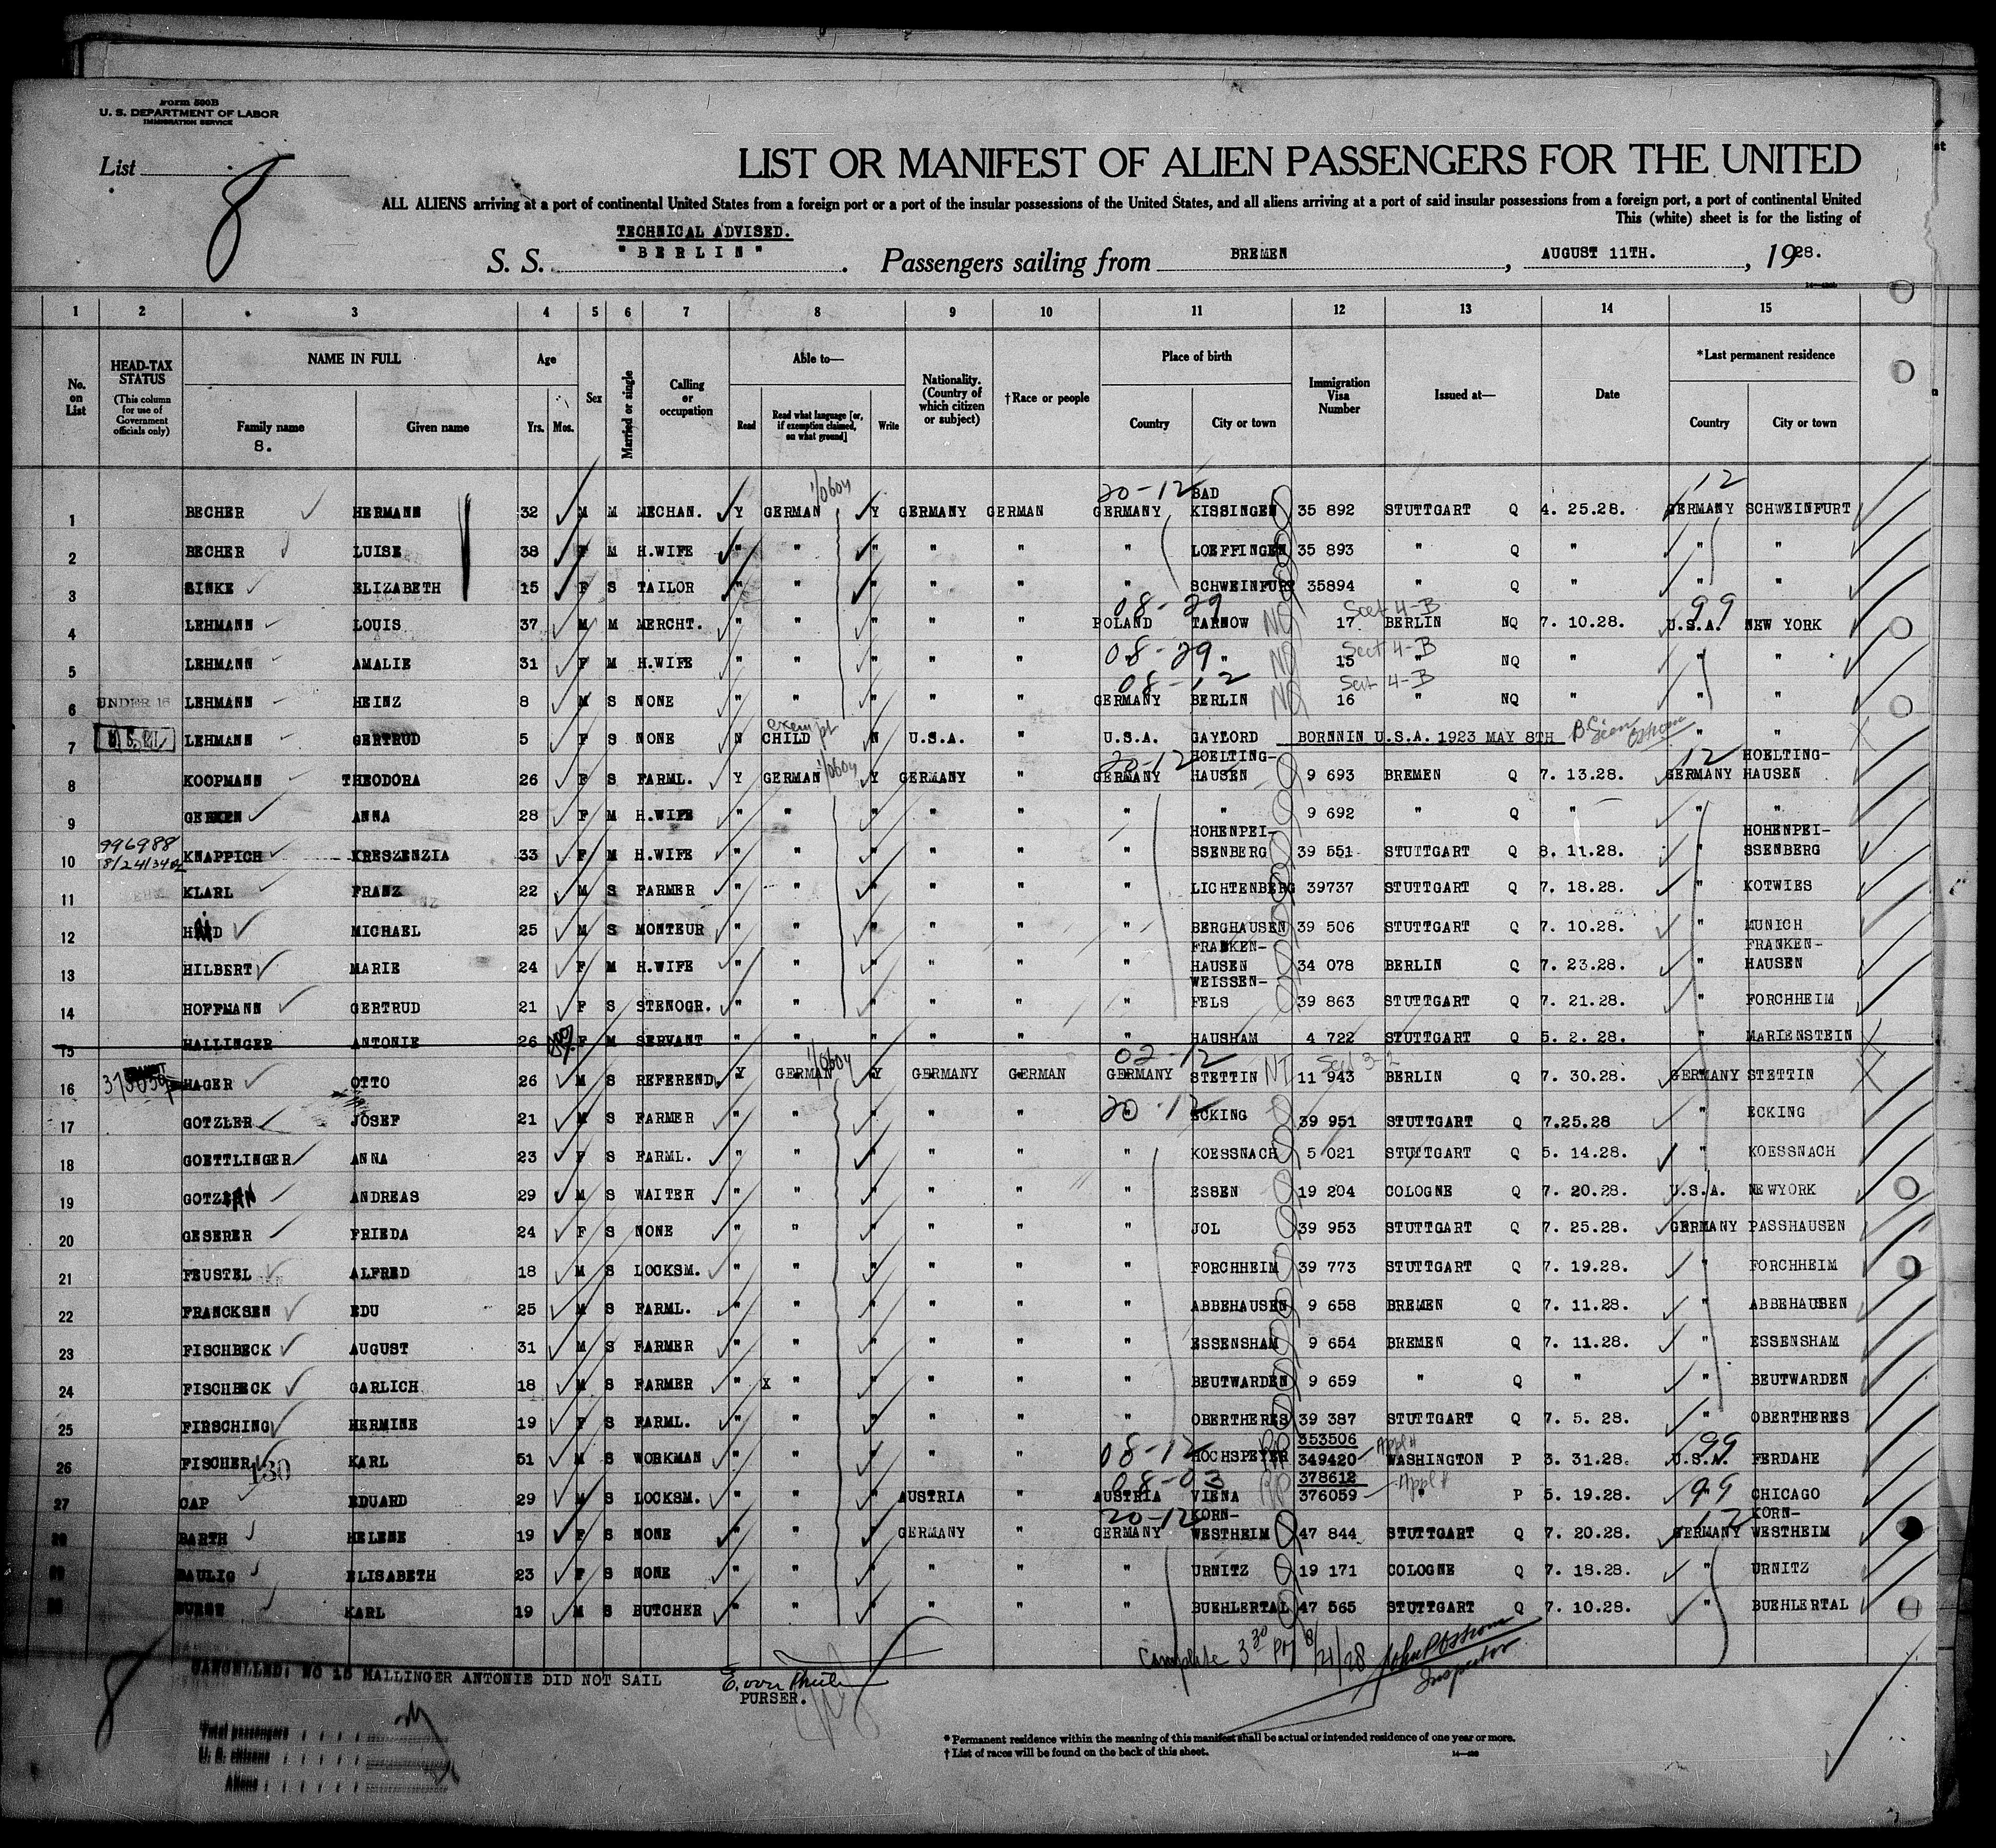 Form 500B
U. S. DEPARTMENT OF LABOR
IMMIGRATION SERVICE
List 8
LIST OR MANIFEST OF ALIEN PASSENGERS FOR THE UNITED
ALL ALIENS arriving at a port of continental United States from a foreign port or a port of the insular possessions of the United States, and all aliens arriving at a port of said insular possessions from a foreign port, a port of continental United
This (white) sheet is for the listing of
TECHNICAL ADVISED.
S. S. "BERLIN". Passengers sailing from BREMEN, AUGUST 11TH., 1928.
1 2 3 4 5 6 7 8 9 10 11 12 13 14 15
No. on List
HEAD-TAX STATUS (This column for use of Government officials only)
NAME IN FULL
Family name
8.
Given name
Age
Yrs. Mos.
Sex
Married or single
Calling or occupation
Able to—
Read
Read what language [or, if exemption claimed, on what ground]
Write
Nationality. (Country of which citizen or subject)
†Race or people
Place of birth
Country City or town
Immigration Visa Number
Issued at—
Date
*Last permanent residence
Country City or town
20-12 BAD 12
1 BECHER HERMANN 32 M M MECHAN. Y GERMAN Y GERMANY GERMAN GERMANY KISSINGEN 35 892 STUTTGART Q 4. 25.28. GERMANY SCHWEINFURT
2 BECHER LUISE 38 F M H.WIFE " " " " " " LOEFFINGEN 35 893 " Q " " "
3 SINKE ELIZABETH 15 F S TAILOR " " " " " " SCHWEINFURT 35894 " Q " " "
08-29 Sect 4-B 99
4 LEHMANN LOUIS 37 M M MERCHT. " " " " " POLAND TARNOW NQ 17 BERLIN NQ 7. 10.28. U.S.A. NEW YORK
08-29 Sect 4-B
5 LEHMANN AMALIE 31 F M H.WIFE " " " " " " NQ 15 " NQ " " "
08-12 Sect 4-B
6 UNDER 16 LEHMANN HEINZ 8 M S NONE " " " " " GERMANY BERLIN NQ 16 " NQ " " "
exempt
7 LEHMANN GERTRUD 5 F S NONE N CHILD N U.S.A. " U.S.A. GAYLORD BORNNIN U.S.A. 1923 MAY 8TH " "
20-12 HOELTING- 12 HOELTING-
8 KOOPMANN THEODORA 26 F S FARML. Y GERMAN Y GERMANY " GERMANY HAUSEN 9 693 BREMEN Q 7. 13.28. GERMANY HAUSEN
9 GERKEN ANNA 28 F M H.WIFE " " " " " " " 9 692 " Q " " "
996988 HOHENPEI- HOHENPEI-
10 KNAPPICH KRESZENZIA 33 F M H.WIFE " " " " " " SSENBERG 39 551 STUTTGART Q 8. 11.28. " SSENBERG
11 KLARL FRANZ 22 M S FARMER " " " " " " LICHTENBERG 39737 STUTTGART Q 7. 18.28. " KOTWIES
12 MICHAEL 25 M S MONTEUR " " " " " " BERGHAUSEN 39 506 STUTTGART Q 7. 10.28. " MUNICH
FRANKEN- FRANKEN-
13 HILBERT MARIE 24 F M H.WIFE " " " " " " HAUSEN 34 078 BERLIN Q 7. 23.28. " HAUSEN
WEISSEN-
14 HOFFMANN GERTRUD 21 F S STENOGR. " " " " " " FELS 39 863 STUTTGART Q 7. 21.28. " FORCHHEIM
15 HALLINGER ANTONIE 26 F M SERVANT " " " " " " HAUSHAM 4 722 STUTTGART Q 5. 2. 28. " MARIENSTEIN
02-12
16 HAGER OTTO 26 M S REFEREND. Y GERMAN Y GERMANY GERMAN GERMANY STETTIN NT 11 943 BERLIN Q 7. 30.28. GERMANY STETTIN
20-12
17 GOTZLER JOSEF 21 M S FARMER " " " " " " ECKING 39 951 STUTTGART Q 7.25.28 " ECKING
18 GOETTLINGER ANNA 23 F S FARML. " " " " " " KOESSNACH 5 021 STUTTGART Q 5. 14.28. " KOESSNACH
19 ANDREAS 29 M S WAITER " " " " " " ESSEN 19 204 COLOGNE Q 7. 20.28. U.S.A. NEWYORK
20 GESERER FRIEDA 24 F S NONE " " " " " " JOL 39 953 STUTTGART Q 7. 25.28. GERMANY PASSHAUSEN
21 FEUSTEL ALFRED 18 M S LOCKSM. " " " " " " FORCHHEIM 39 773 STUTTGART Q 7. 19.28. " FORCHHEIM
22 FRANCKSEN EDU 25 M S FARML. " " " " " " ABBEHAUSEN 9 658 BREMEN Q 7. 11.28. " ABBEHAUSEN
23 FISCHBECK AUGUST 31 M S FARMER " " " " " " ESSENSHAM 9 654 BREMEN Q 7. 11.28. " ESSENSHAM
24 FISCHBECK GARLICH 18 M S FARMER " X " " " " " BEUTWARDEN 9 659 " Q " " BEUTWARDEN
25 FIRSCHING HERMINE 19 F S FARML. " " " " " " OBERTHERES 39 387 STUTTGART Q 7. 5. 28. " OBERTHERES
08-12 353506 Appl # 99
26 FISCHER 130 KARL 51 M S WORKMAN " " " " " HOCHSPEYER RP 349420 WASHINGTON P 3. 31.28. FERDAHE
08-03 378612 Appl #
27 CAP EDUARD 29 M S LOCKSM. " " " AUSTRIA " AUSTRIA VIENA RP 376059 " P 5. 19.28. 99 CHICAGO
20-12 KORN- 12 KORN-
28 BARTH HELENE 19 F S NONE " " " GERMANY " GERMANY WESTHEIM 47 844 STUTTGART Q 7. 20.28. GERMANY WESTHEIM
BAULIG ELISABETH 23 F S NONE " " " " " " URNITZ 19 171 COLOGNE Q 7. 18.28. " URNITZ
KARL 19 M S BUTCHER " " " " " " BUEHLERTAL 47 565 STUTTGART Q 7. 10.28. " BUEHLERTAL
Complete 3 30 PM 8/21/28 Inspector
CANCELLED: NO 15 HALLINGER ANTONIE DID NOT SAIL
PURSER.
8
Total passengers
U. S. citizens
Aliens
* Permanent residence within the meaning of this manifest shall be actual or intended residence of one year or more.
† List of races will be found on the back of this sheet.